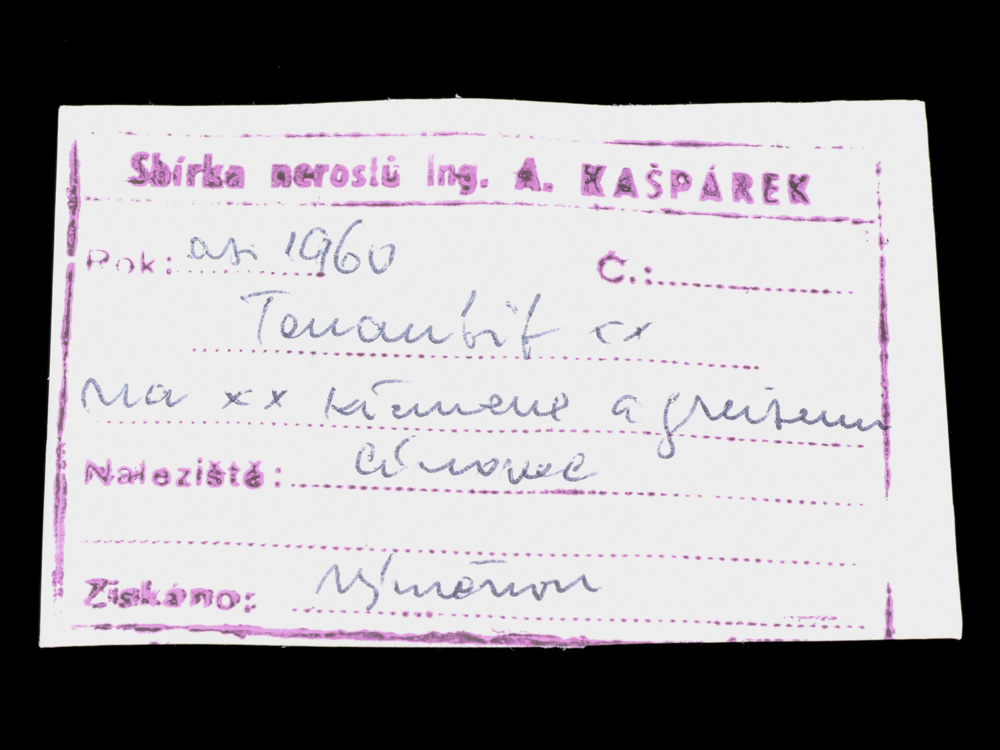 Sbírka nerostů Ing. A. KAŠPÁREK
Rok: asi 1960 Č.:
Tenantit xx
na xx křemene a greisenu
Naleziště: Cínovec
Získáno: Výměnou